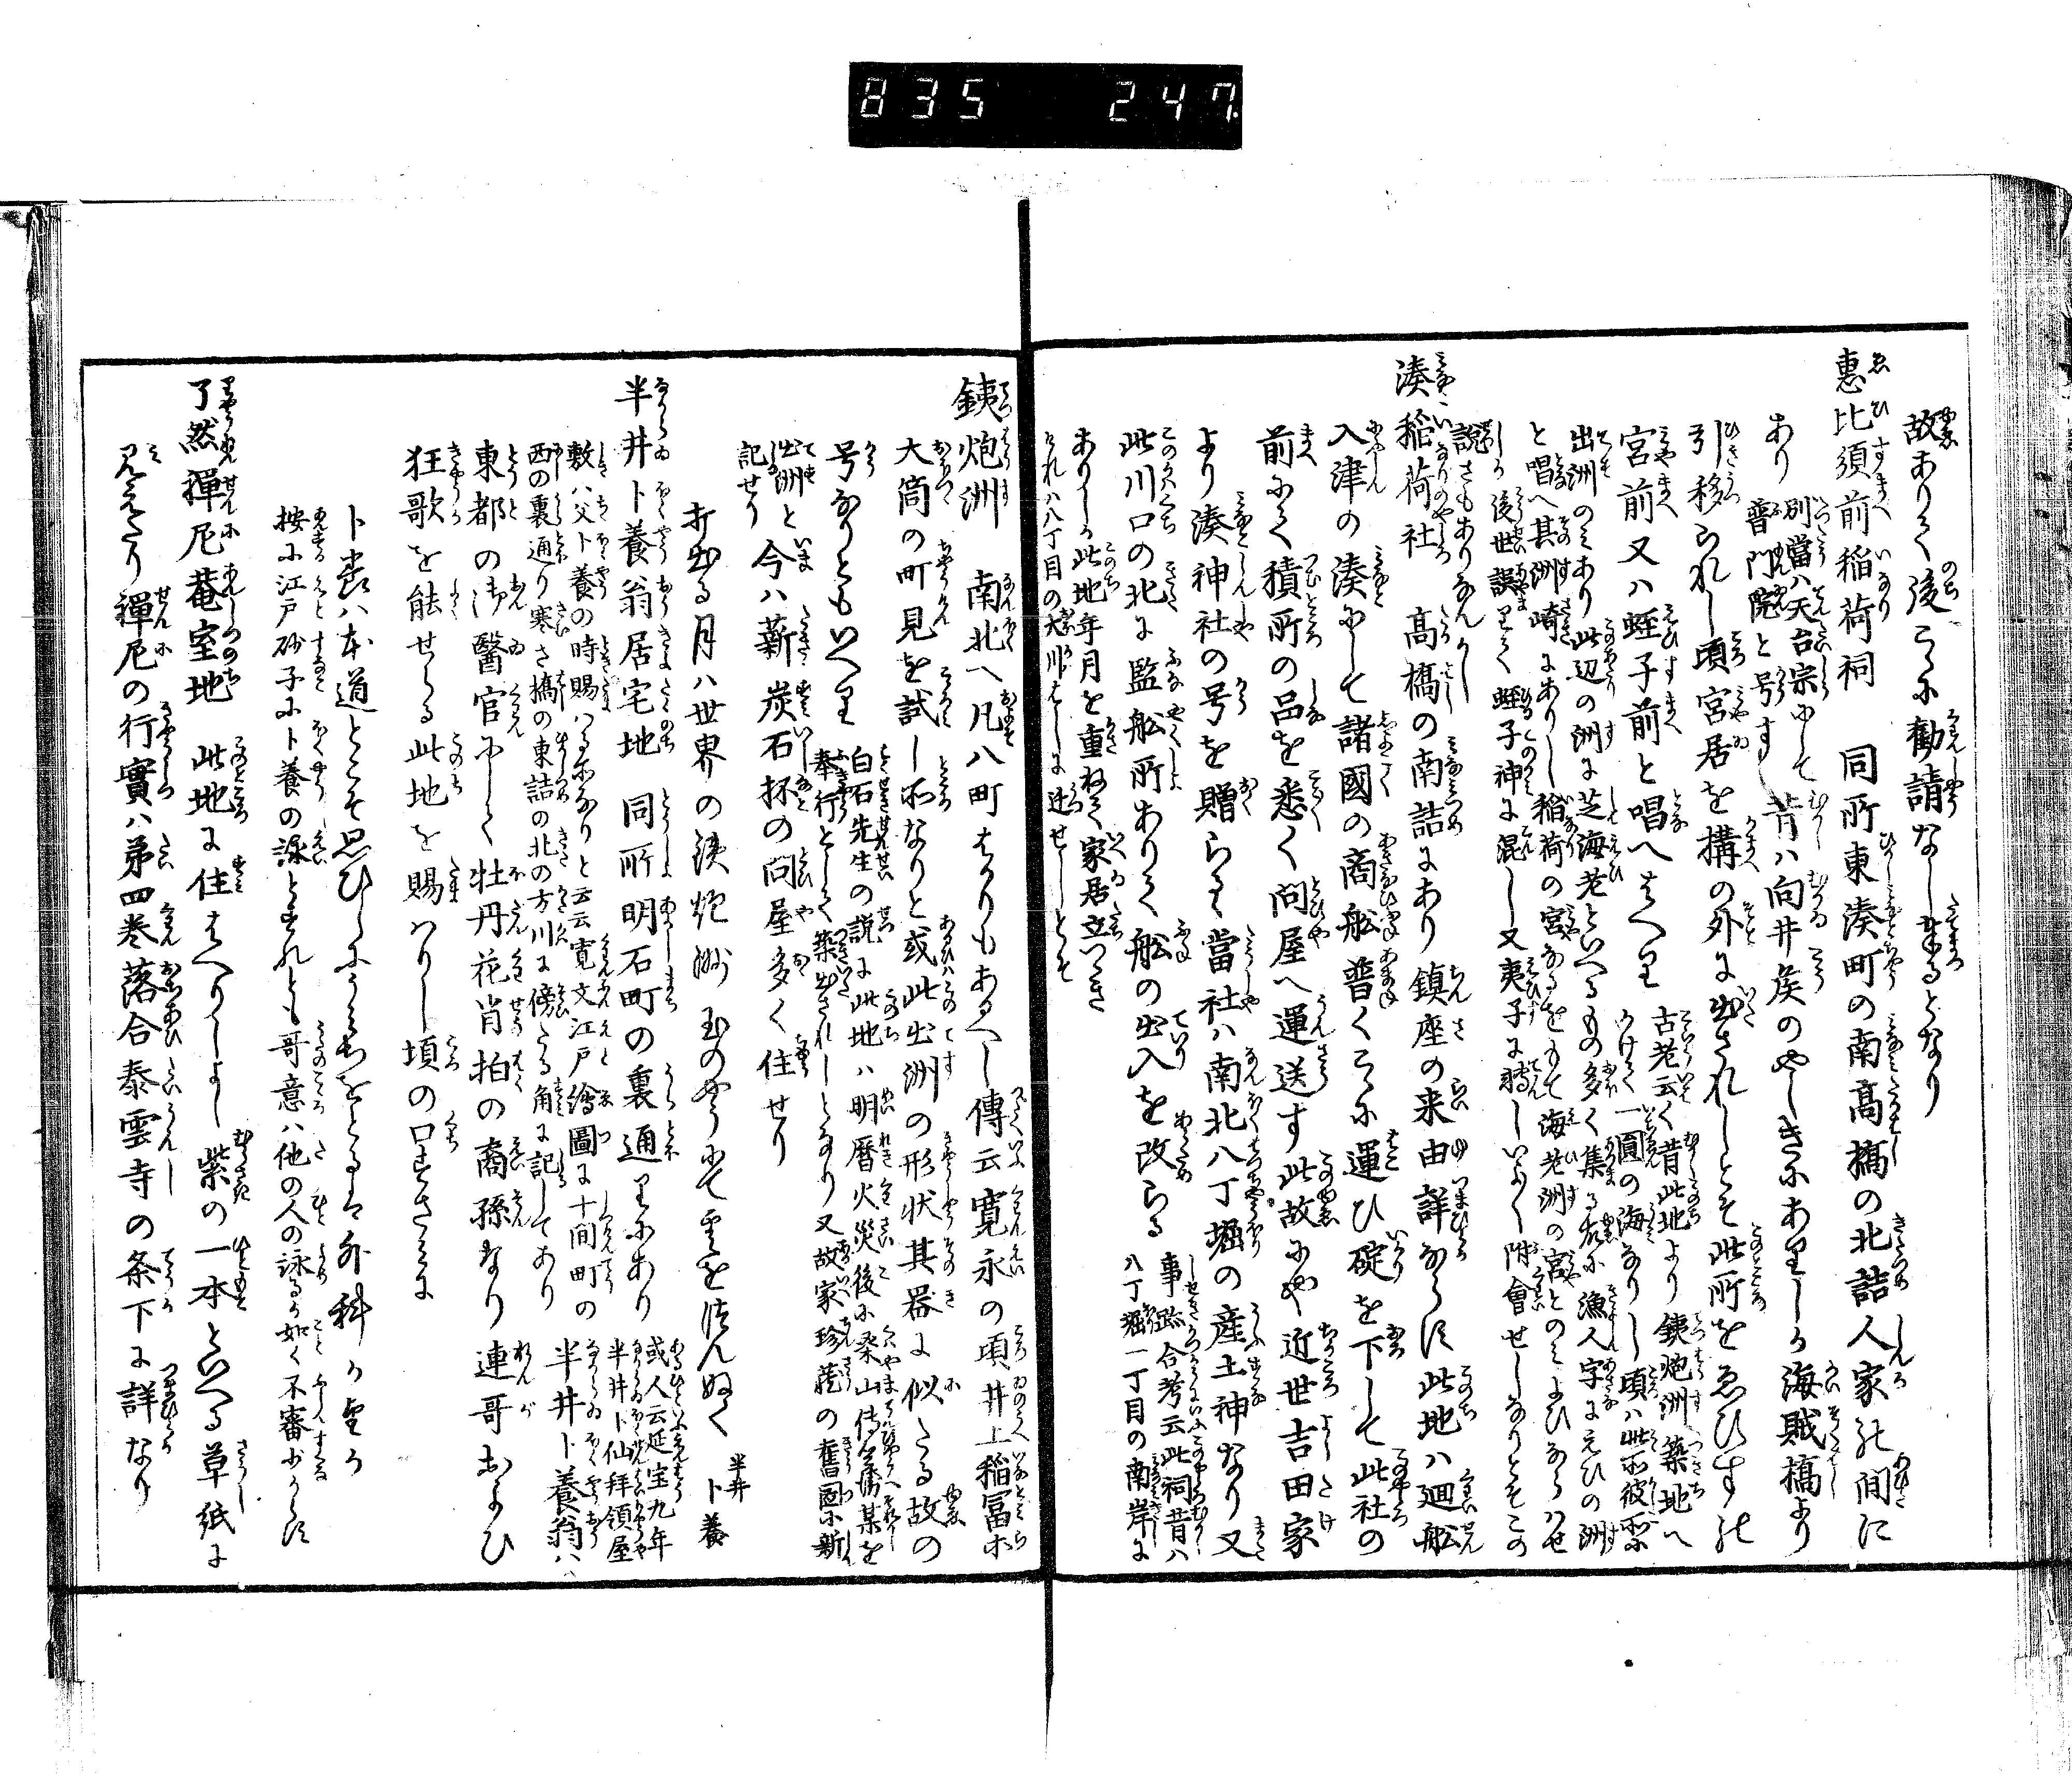 835 247
故ありて後こゝに勧請なし奉るとなり
惠比須前稲荷祠 同所東湊町の南高橋の北詰人家の間に
あり 別當ハ天台宗にして普門院と号す 昔ハ向井矦のやしきにありしか海賊橋より
引移られし頃宮居を構の外に出されしとそ此所をゑひすの
宮前又ハ蛭子前と唱へはへり 古老云く昔此地より銕炮洲築地へかけて一圓の海なりし頃ハ此所彼所に
出洲のミあり此辺の洲に芝海老といへるもの多く集る故に漁人字にえひの洲
と唱へ其洲崎にありし稲荷の宮なるをもて海老洲の宮とのミよひならハせ
しか後世誤りて蛭子神に混し又夷子に轉しいよ〳〵附會せしなりとそこの
説さもありなんかし
湊稲荷社 高橋の南詰にあり鎮座の来由詳ならす此地ハ廻舩
入津の湊にして諸國の商舩普くこゝに運ひ碇を下して此社の
前にて積所の品を悉く問屋へ運送す此故にや近世吉田家
より湊神社の号を贈らる當社ハ南北八丁堀の産土神なり又
此川口の北に監舩所ありて舩の出入を改らる 事跡合考云此祠昔ハ八丁堀一丁目の南岸に
ありしか此地年月を重ねて家居立つゝき
それハ八丁目の大川はしに迁せしとそ
銕炮洲 南北へ凡八町はかりもあるへし傳云寛永の頃井上稲冨
大筒の町見を試し所なりと或此出洲の形状其器に似たる故の
号なりともいへり 白石先生の説に此地ハ明暦火災後に桑山傳兵衛某を
奉行として築出されしとなり又故家珎藏の舊圖に新
出洲と
記せり 今ハ薪炭石抔の問屋多く住せり
打出る月ハ世界の銕炮洲玉のやうにて雲を法んぬく 半井卜養
半井卜養翁居宅地 同所明石町の裏通りにあり 或人云延宝九年半井卜仙拜領屋
敷ハ父卜養の時賜ハる所なりと云云寛文江戸繪圖に十間町の
西の裏通り寒さ橋の東詰の北の方川に傍たる角に記してあり 半井卜養翁ハ
東都の御醫官にして牡丹花肖拍の裔孫なり連哥およひ
狂歌を能せらる此地を賜ハりし頃の口すさミに
卜養ハ本道とこそ思ひしに
按に江戸砂子に卜養の詠とすれとも哥意ハ他の人の詠るか如く不審少からす
了然禪尼菴室地 此地に住はへりしよし紫の一本といへる草紙に
見えたり禪尼の行實ハ弟四巻落合泰雲寺の条下に詳なり